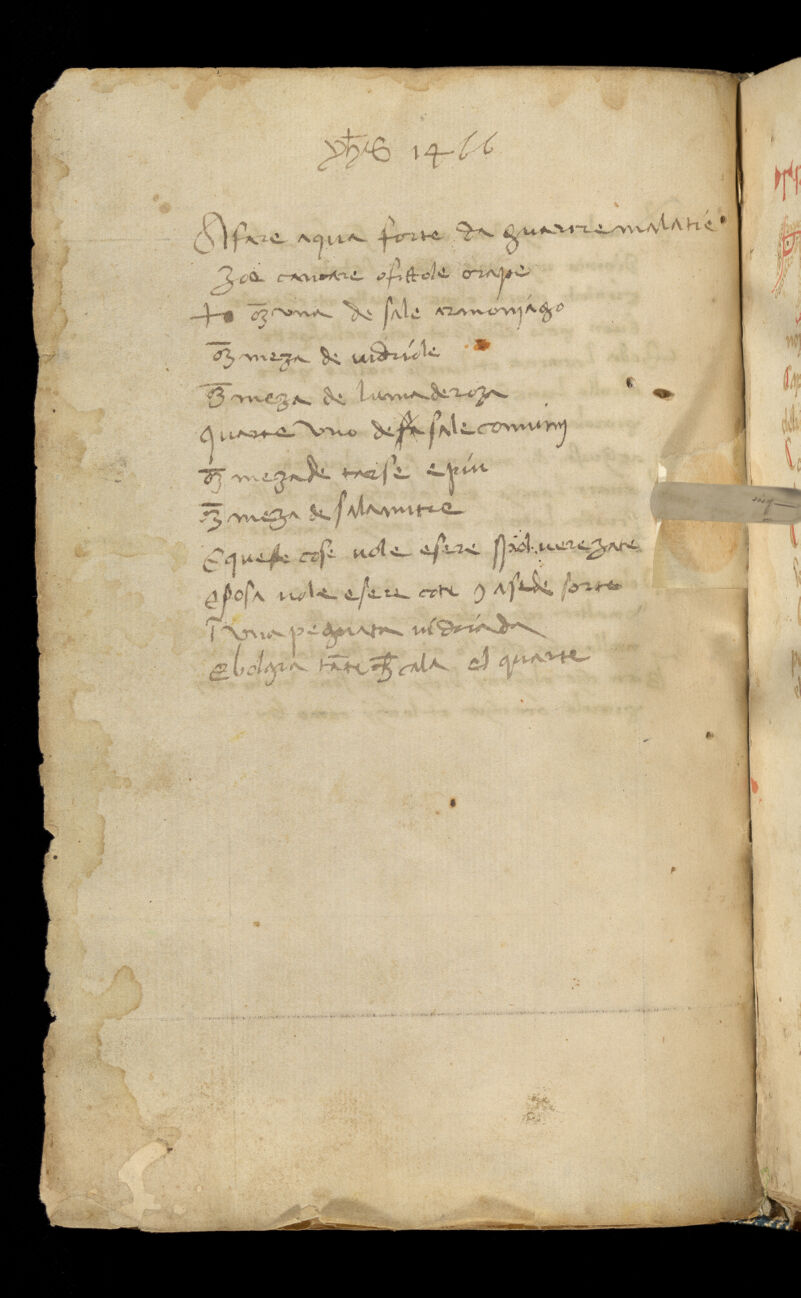 yhs 1466
A fare aqua forte da guarire malatie
Zoe cancare ofistole orape
una de sale armoniago
meza de vidriole
meza de lumaderoza
quarte uno de sale comuny
meza de tarse e piu
meza de salanitre
E queste cose vole esere polverezate
e posa vole esere cote
una pegnata vidriada
e bolgia tāte cala el quarte